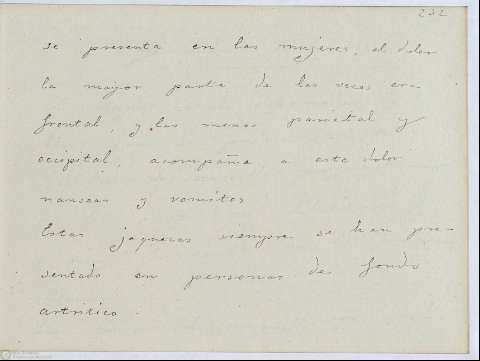 232
se presenta en las mujeres, el dolor
la mayor parte de las veces era
frontal, y las menos parietal y
occipital, acompaña a este dolor
nauseas y vomitos
Estas jaquecas siempre se han pre-
sentado en personas de fondo
artritico.